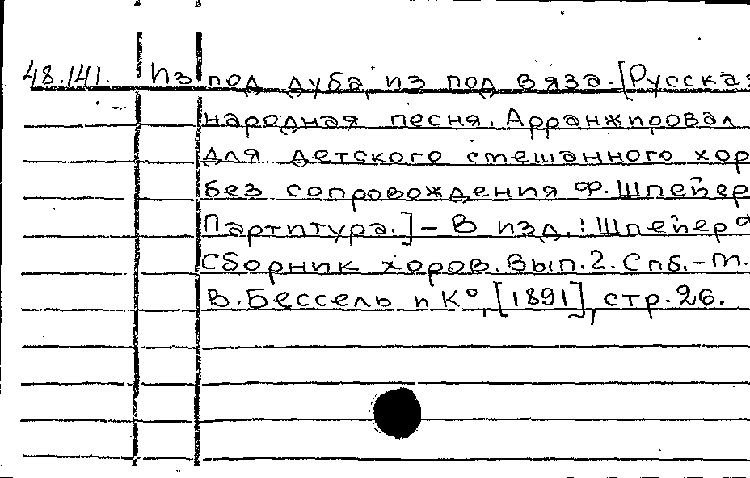 48.141. Из под дуба, из под вяза. [Русская
народная песня. Арранжировал
для детского смешанного хор
без сопровождения Ф. Шпейер
Партитура.] – В изд.: Шпейер Ф
Сборник хоров. Вып. 2. Спб. – М.
В. Бессель и К°, [1891], стр. 26.